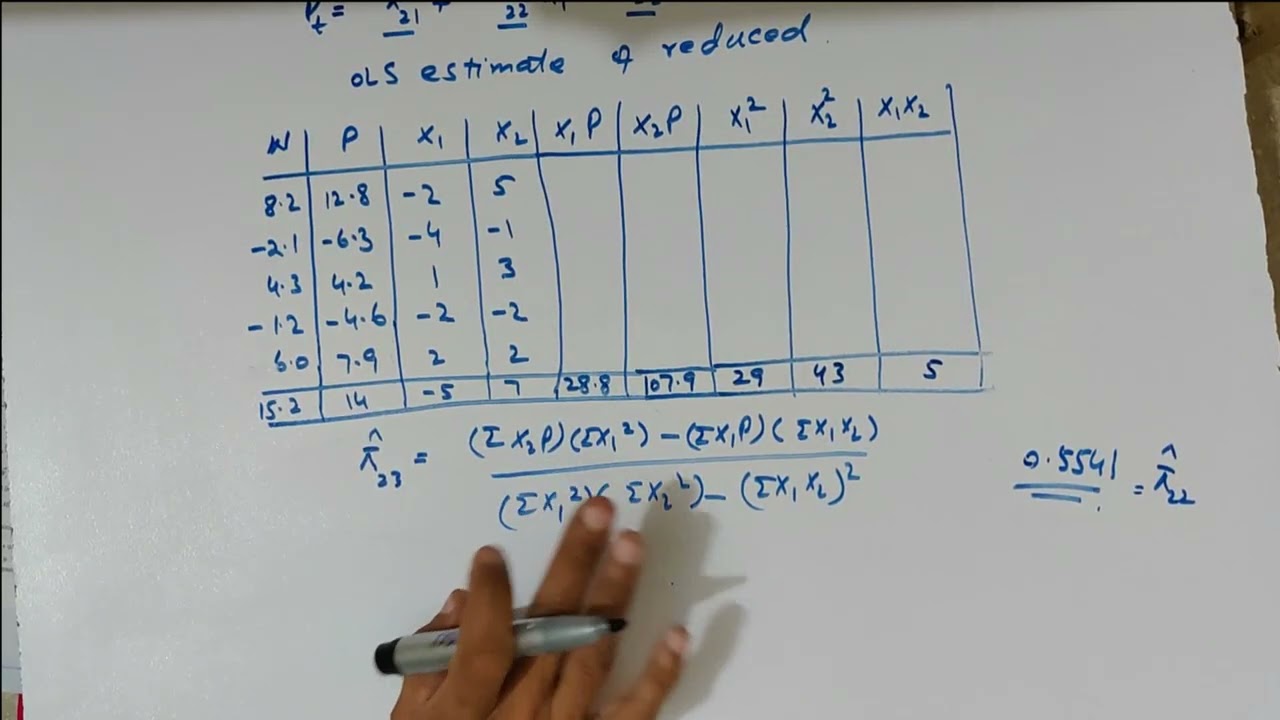 P_t = π̂_21 + _22
OLS estimate of reduced
W | P | X₁ | X₂ | X₁P | X₂P | X₁² | X₂² | X₁X₂
8.2 | 12.8 | -2 | 5
-2.1 | -6.3 | -4 | -1
4.3 | 4.2 | 1 | 3
-1.2 | -4.6 | -2 | -2
6.0 | 7.9 | 2 | 2
15.2 | 14 | -5 | 7 | 28.8 | 107.9 | 29 | 43 | 5
π̂_23 = (ΣX₂P)(ΣX₁²) - (ΣX₁P)(ΣX₁X₂)
(ΣX₁²)(ΣX₂²) - (ΣX₁X₂)²
0.5541 = π̂_22